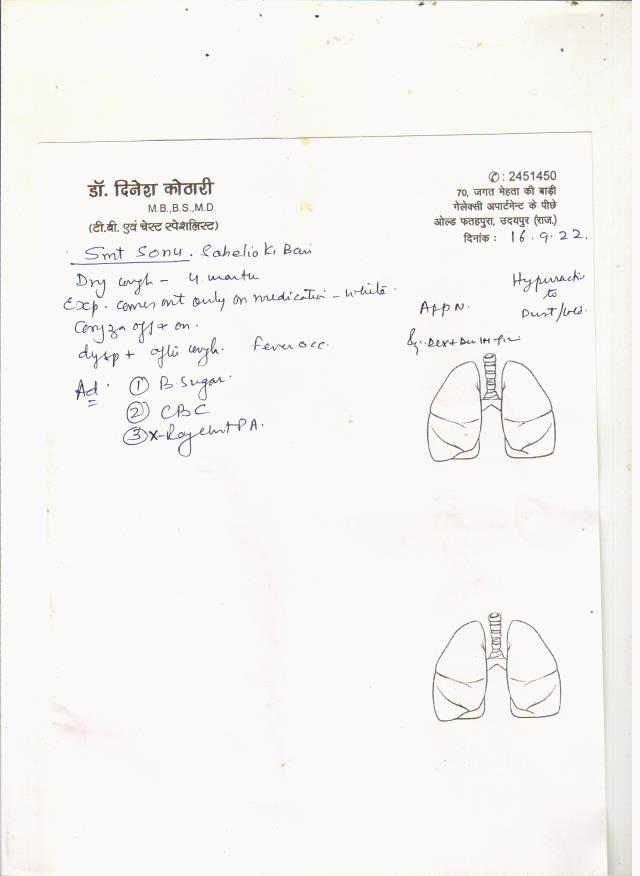 डॉ. दिनेश कोठारी
M.B.,B.S.,M.D.
(टी.बी. एवं चेस्ट स्पेशलिस्ट)
✆ : 2451450
70, जगत मेहता की बाड़ी
गेलेक्सी अपार्टमेन्ट के पीछे
ओल्ड फतहपुरा, उदयपुर (राज.)
दिनांक : 16.9.22.
Smt Sonu. Sahelio Ki Bari
Dry cough - 4 months
Exp. comes out only on medication - white.
Coryza off & on.
dysp + after cough. Fever occ.
Ad.
① B. Sugar.
② CBC
③ X-Ray chest PA.
App N.
to
Dust/